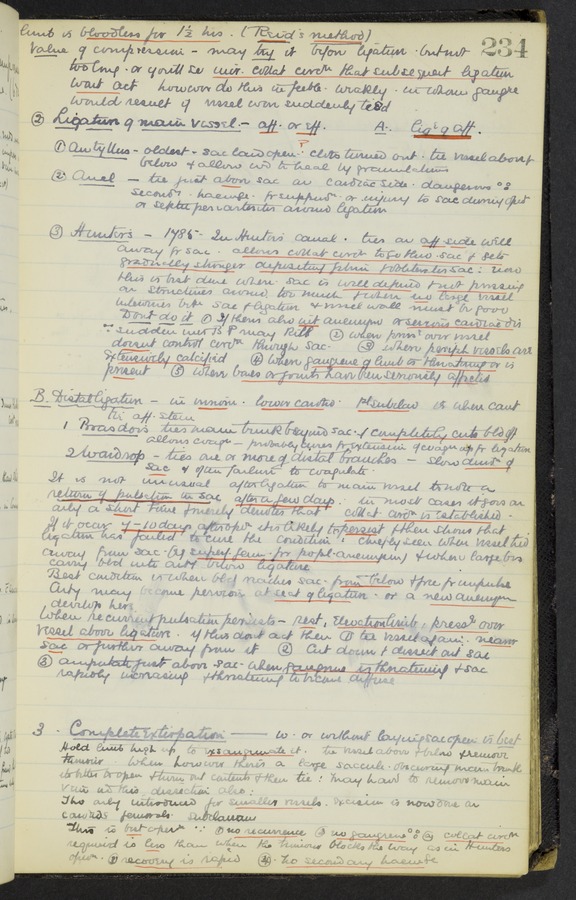 limb is bloodless for 1½ hrs. (Reid's method)
234
Value of compression - may try it before ligation. but not
too long. or you'll se incr. collat circn that subsequent ligation
wont act however do this in feeble. weakly. in whom gangre
would result if vessel were suddenly tied
② Ligation of main vessel:- aff. or eff. A. lign of aff.
① Antyllus - oldest - sac laid open. clots turned out. tie vessel above &
below & allows wd to heal by granulations
② Anel - tie just above sac on cardiac side. dangerous
second. haemge. fr suppurn. or injury to sac during opn
or septic periarteritis around ligation
③ Hunter's - 1785 - In Hunter's canal. ties an aff side well
away fr sac. allows collat circn to go thro sac & sets
gradually stronger depositing fibrin & obliterates sac: now
this is best done when sac is well defined & not pressing
on structures around too much & when no large vessel
intervenes betw sac & ligation & vessel wall must be good
Dont do it ① If there also int aneurysm or serious cardiac dis
∵ sudden incr B P may kill ② when press over vessel
doesnt control circn through sac ③ when periph vessels are
extensively calcified ④ when gangrene of limb is threatening or is
present ⑤ when bones or joints have been seriously affected
B. Distal ligation - in innom. lower carotid. subclav is when cant
tie aff. stem
1 Brasdor's ties main trunk beyond sac & completely cuts bld off
allows coagn - probably cures fr extension of coagn up fr ligation
2 Wardrop - ties one or more of distal branches - slows down
sac & often failure to coagulate.
It is not unusual after ligation to main vessel to note a
return of pulsation in sac after a few days. in most cases it goes on
only a short time & merely denotes that collat circn is established.
If it occur 7-10 days after opn it is likely to persist & then shows that
ligation has failed to cure the condition; chiefly seen when vessel tied
away from sac. (eg superf. fem. for popl. aneurysm) & when large brs
carry bld into art below ligature
Best condition is when bld reaches sac from below & free fr impulse
Arty may become pervious at seat of ligation. or a new aneurysm
develops here
When recurrent pulsation persists - rest, elevation limb, press. over
vessel above ligature. if this dont act then ① tie vessel again. nearer
sac or further away from it ② Cut down & dissect out sac
③ amputate just above sac. when gangrene is threatening & sac
rapidly increasing & threatening to become diffuse
3. Complete Extirpation - w. or without laying sac open is best
Hold limb high up to exsanguinate it. tie vessel above & below & remove
tumour. When however there's a large saccule obscuring main trunk
its better to open & turn out contents & then tie: may have to remove main
vein in this dissection also:
Tho only introduced for smaller vessels. excision is now done on
carotids femorals subclavian
This is best opern ∵ ① no recurrence ② no gangrene ∵ collat circn
required is less than when the tumour blocks the way as in Hunters
opn. ③ recovery is rapid ④ no secondary haemge